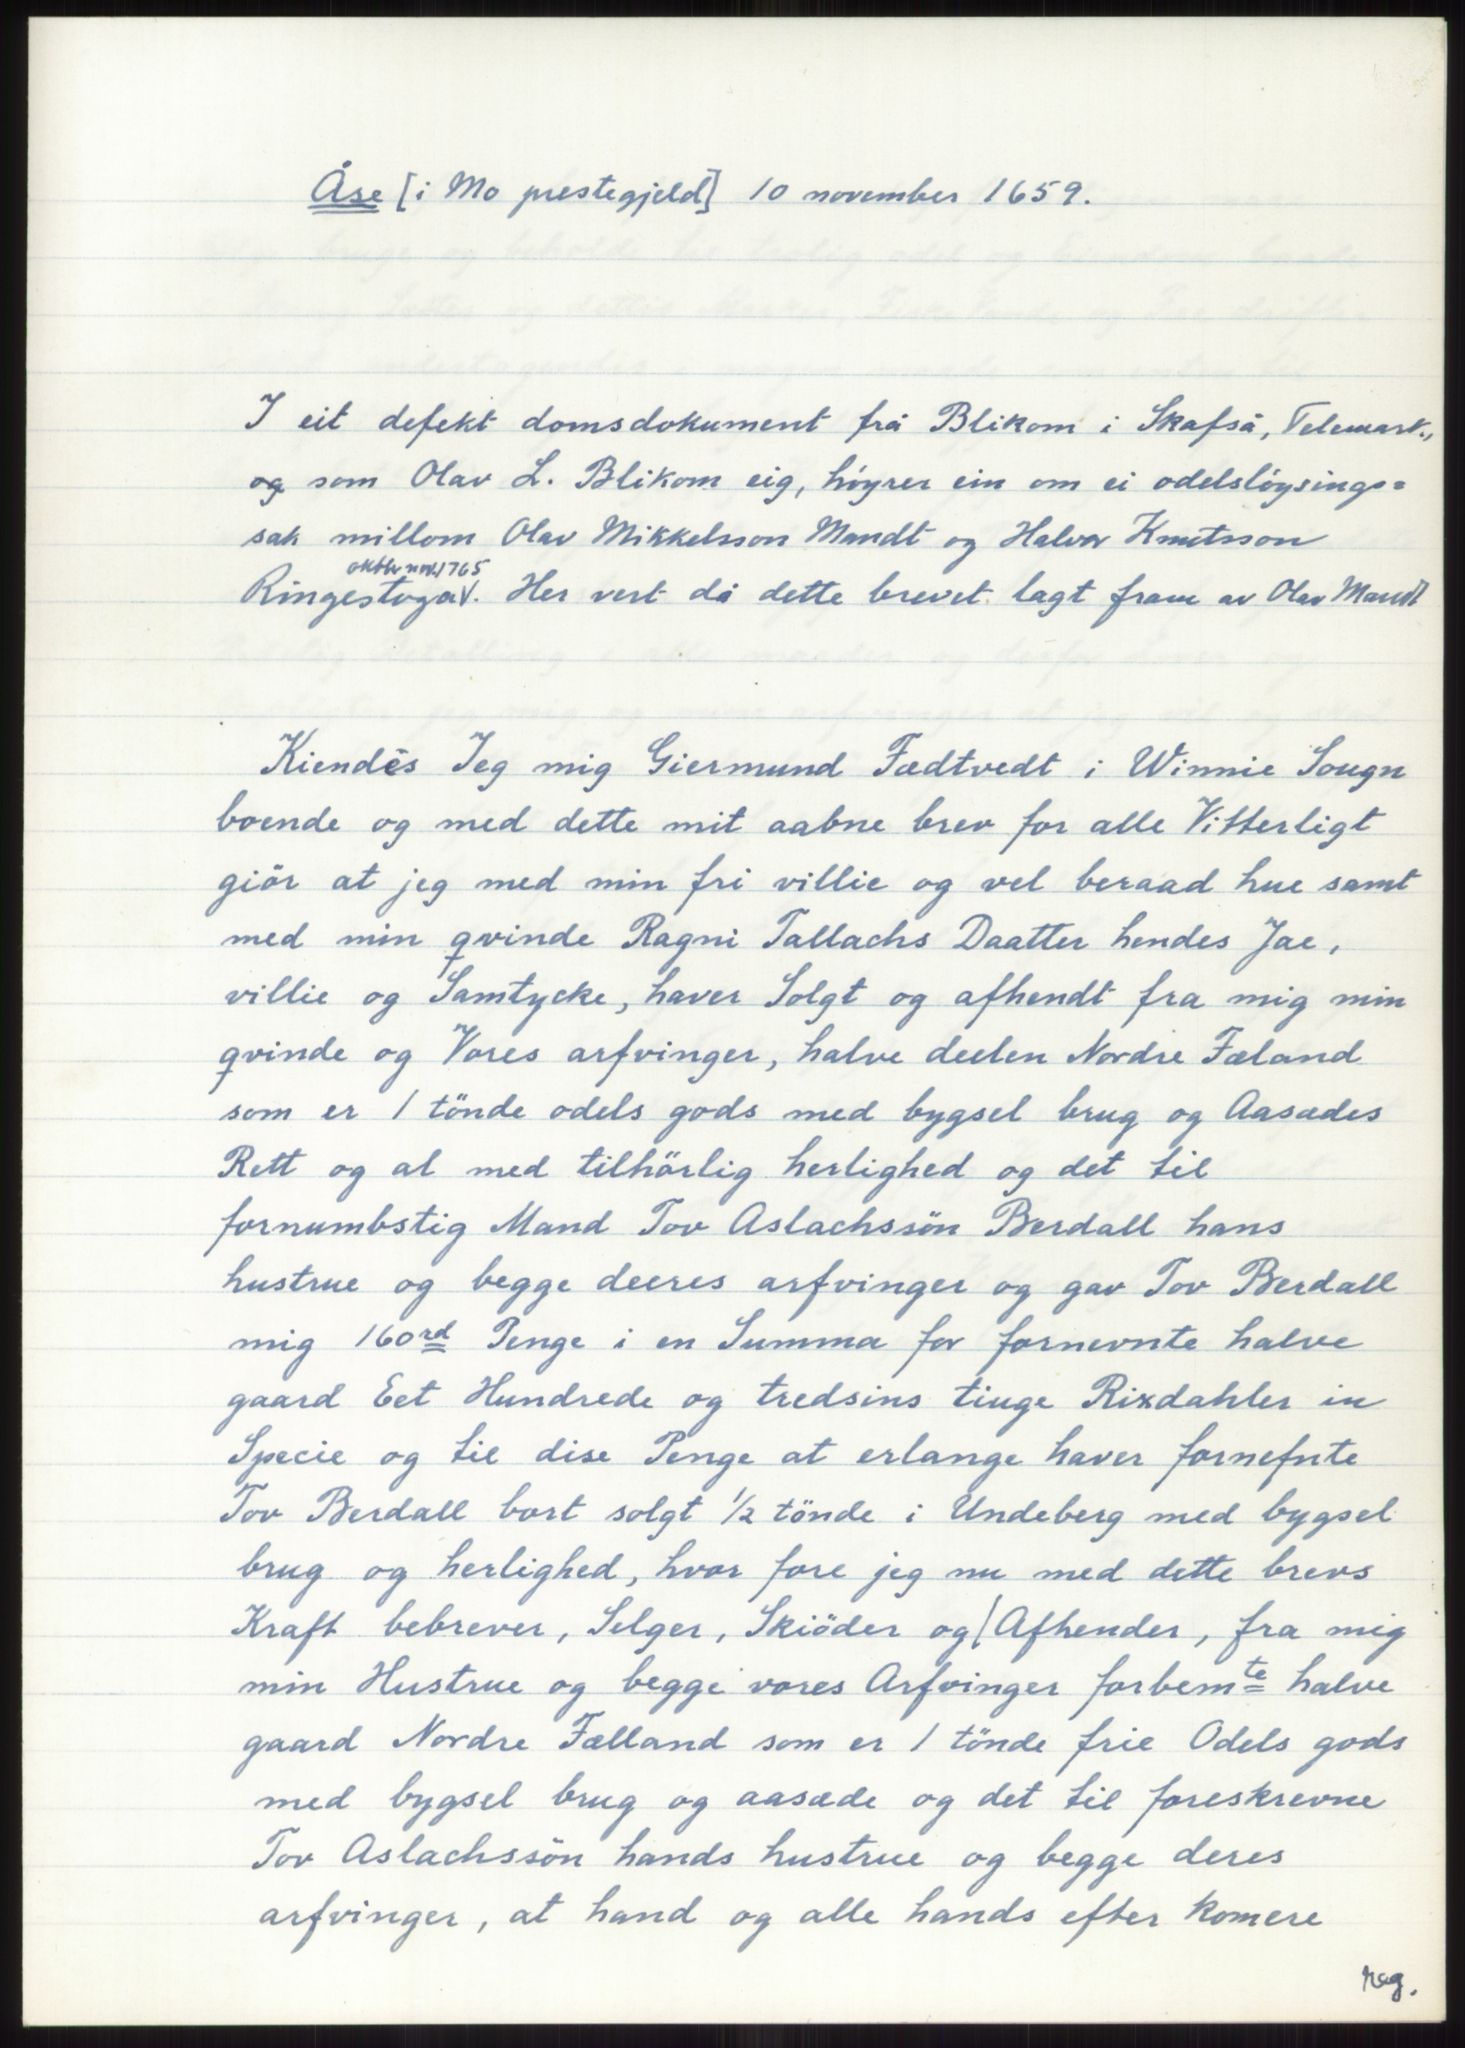 Åse [i Mo prestegjeld] 10 november 1659.
I eit defekt domsdokument frå Blikom i Skafså, Telemark,
og som Olav L. Blikom eig, höyrer ein om ei odelslöysings=
sak millom Olav Mikkelsson Mandt og Halvor Knutsson
oktbr nov. 1765
Ringestoga V. Her vert då dette brevet lagt fram av Olav Mandt
Kiendes Jeg mig Giermund Fædtvedt i Winnie Sougn
boende og med dette mit aabne brev for alle Vitterligt
giör at jeg med min fri villie og vel beraad hue samt
med min qvinde Ragni Tallachs Daatter hendes Jae,
villie og Samtycke, haver Solgt og afhendt fra mig min
qvinde og Vores arfvinger, halve deelen Nordre Fæland
som er 1 tönde odels gods med bygsel brug og Aasædes
Rett og al med tilhörlig herlighed og det til
fornumbstig Mand Tov Aslachssön Berdall hans
hustrue og begge deeres arfvinger og gav Tov Berdall
mig 160rd Penge i en Summa for fornevnte halve
gaard Eet Hundrede og tredsins tiuge Rixdahler in
Specie og til dise Penge at erlange haver fornefnte
Tov Berdall bort solgt 1/2 tönde i Undeberg med bygsel
brug og herlighed, hvor fore jeg nu med dette brevs
Kraft bebrever, Selger, Skiöder og/Afhender, fra mig
min Hustrue og begge vores Arfvinger forbemte halve
gaard Nordre Fælland som er 1 tönde frie Odels gods
med bygsel brug og aasæde og det til foreskrevne
Tov Aslachssön hands hustrue og begge deres
arfvinger, at hand og alle hands efter komere
reg.